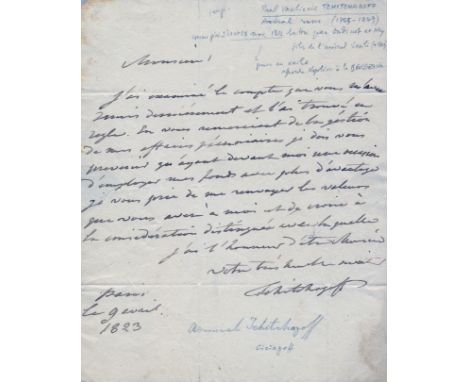 Paul Vasilievic TCHITCHAGOFF
Amiral russe (1765-1849)
fils de l'amiral Vasili
Monsieur!
J'ai examiné le compte que vous m'avez
remis dernièrement et l'ai trouvé en
regle. En vous remerciant de la gestion
de mes affaires pécuniaires je dois vous
prevenir qu'ayant devant moi une occasion
d'employer mes fonds avec plus d'avantage
je vous prie de me renvoyer les valeurs
que vous avez à moi et de croire à
la considération distinguée avec laquelle
j'ai l'honneur d'être Monsieur
votre très humble
Tchitchagoff
paris
le 9 avril.
1823
Admiral Tchitchagoff